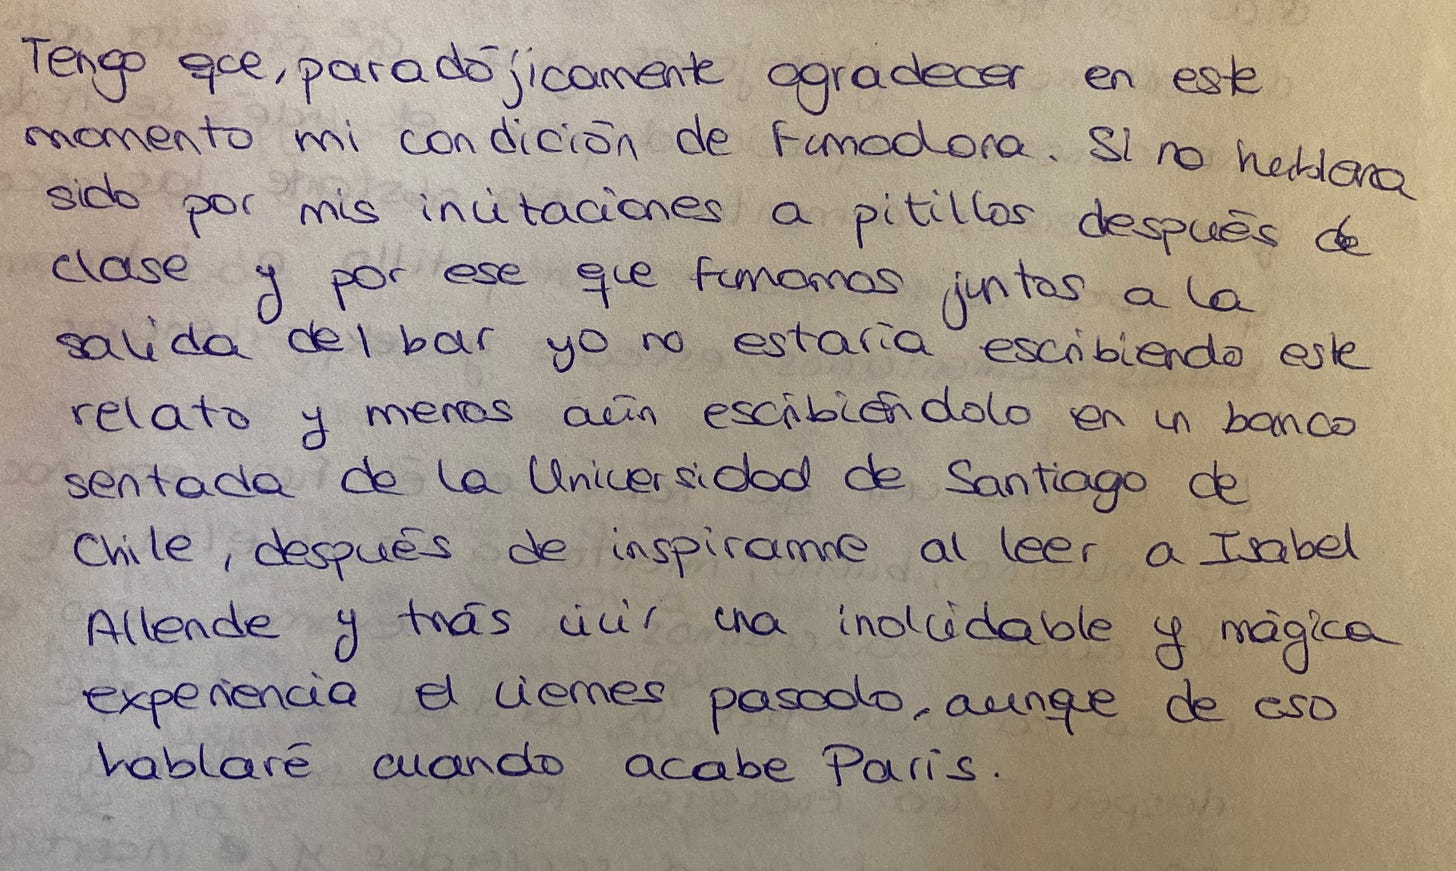 Tengo que, paradójicamente agradecer en este
momento mi condición de fumadora. Si no hubiera
sido por mis invitaciones a pitillos después de
clase y por ese que fumamos juntas a la
salida del bar yo no estaría escribiendo este
relato y menos aún escribiéndolo en un banco
sentada de la Universidad de Santiago de
Chile, después de inspirarme al leer a Isabel
Allende y trás vivir una inolvidable y mágica
experiencia el viernes pasado, aunque de eso
hablaré cuando acabe Paris.